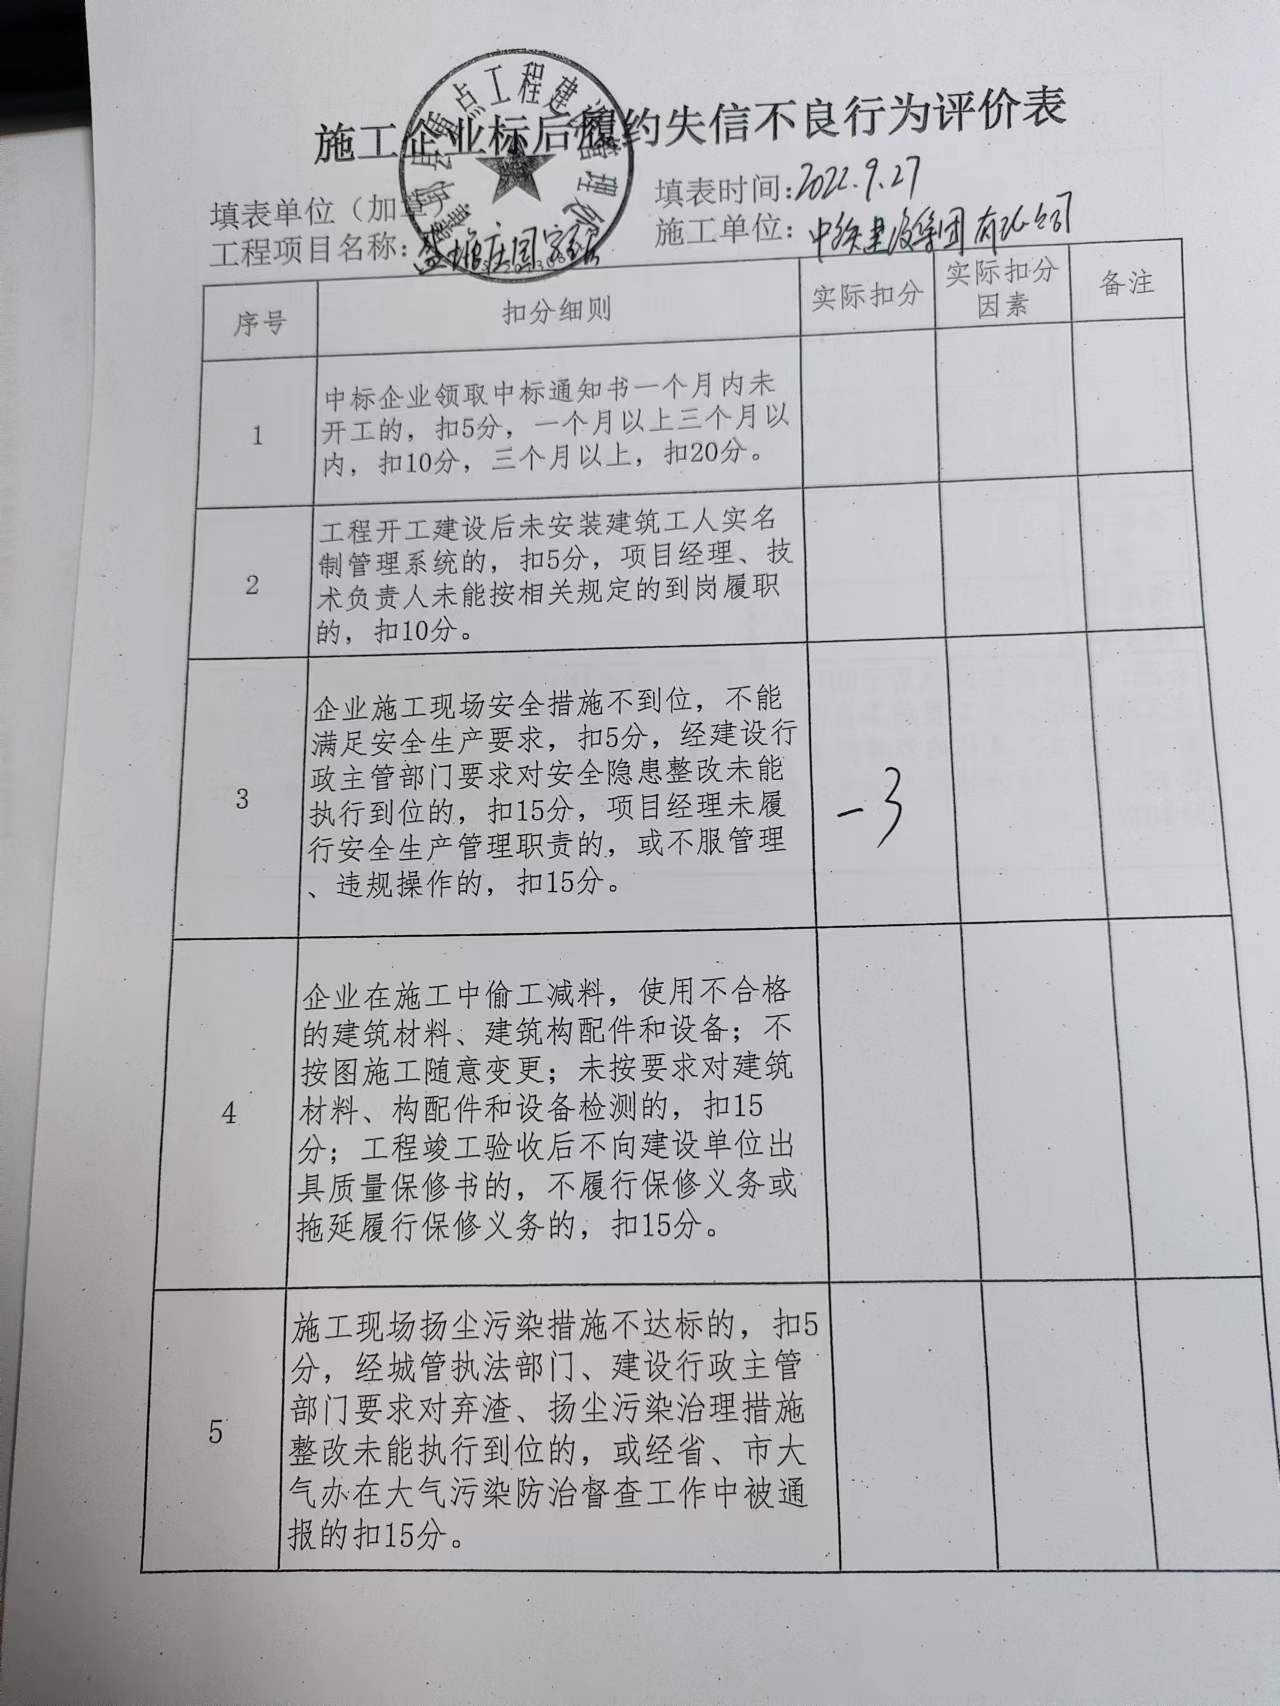 施工企业标后履约失信不良行为评价表
填表单位（加章）
填表时间：2022.9.27
工程项目名称：
施工单位：中铁建设集团有限公司
序号 扣分细则 实际扣分 实际扣分因素 备注
1
中标企业领取中标通知书一个月内未
开工的，扣5分，一个月以上三个月以
内，扣10分，三个月以上，扣20分。
2
工程开工建设后未安装建筑工人实名
制管理系统的，扣5分，项目经理、技
术负责人未能按相关规定的到岗履职
的，扣10分。
3
企业施工现场安全措施不到位，不能
满足安全生产要求，扣5分，经建设行
政主管部门要求对安全隐患整改未能
执行到位的，扣15分，项目经理未履
行安全生产管理职责的，或不服管理
、违规操作的，扣15分。
-3
4
企业在施工中偷工减料，使用不合格
的建筑材料、建筑构配件和设备；不
按图施工随意变更；未按要求对建筑
材料、构配件和设备检测的，扣15
分；工程竣工验收后不向建设单位出
具质量保修书的，不履行保修义务或
拖延履行保修义务的，扣15分。
5
施工现场扬尘污染措施不达标的，扣5
分，经城管执法部门、建设行政主管
部门要求对弃渣、扬尘污染治理措施
整改未能执行到位的，或经省、市大
气办在大气污染防治督查工作中被通
报的扣15分。